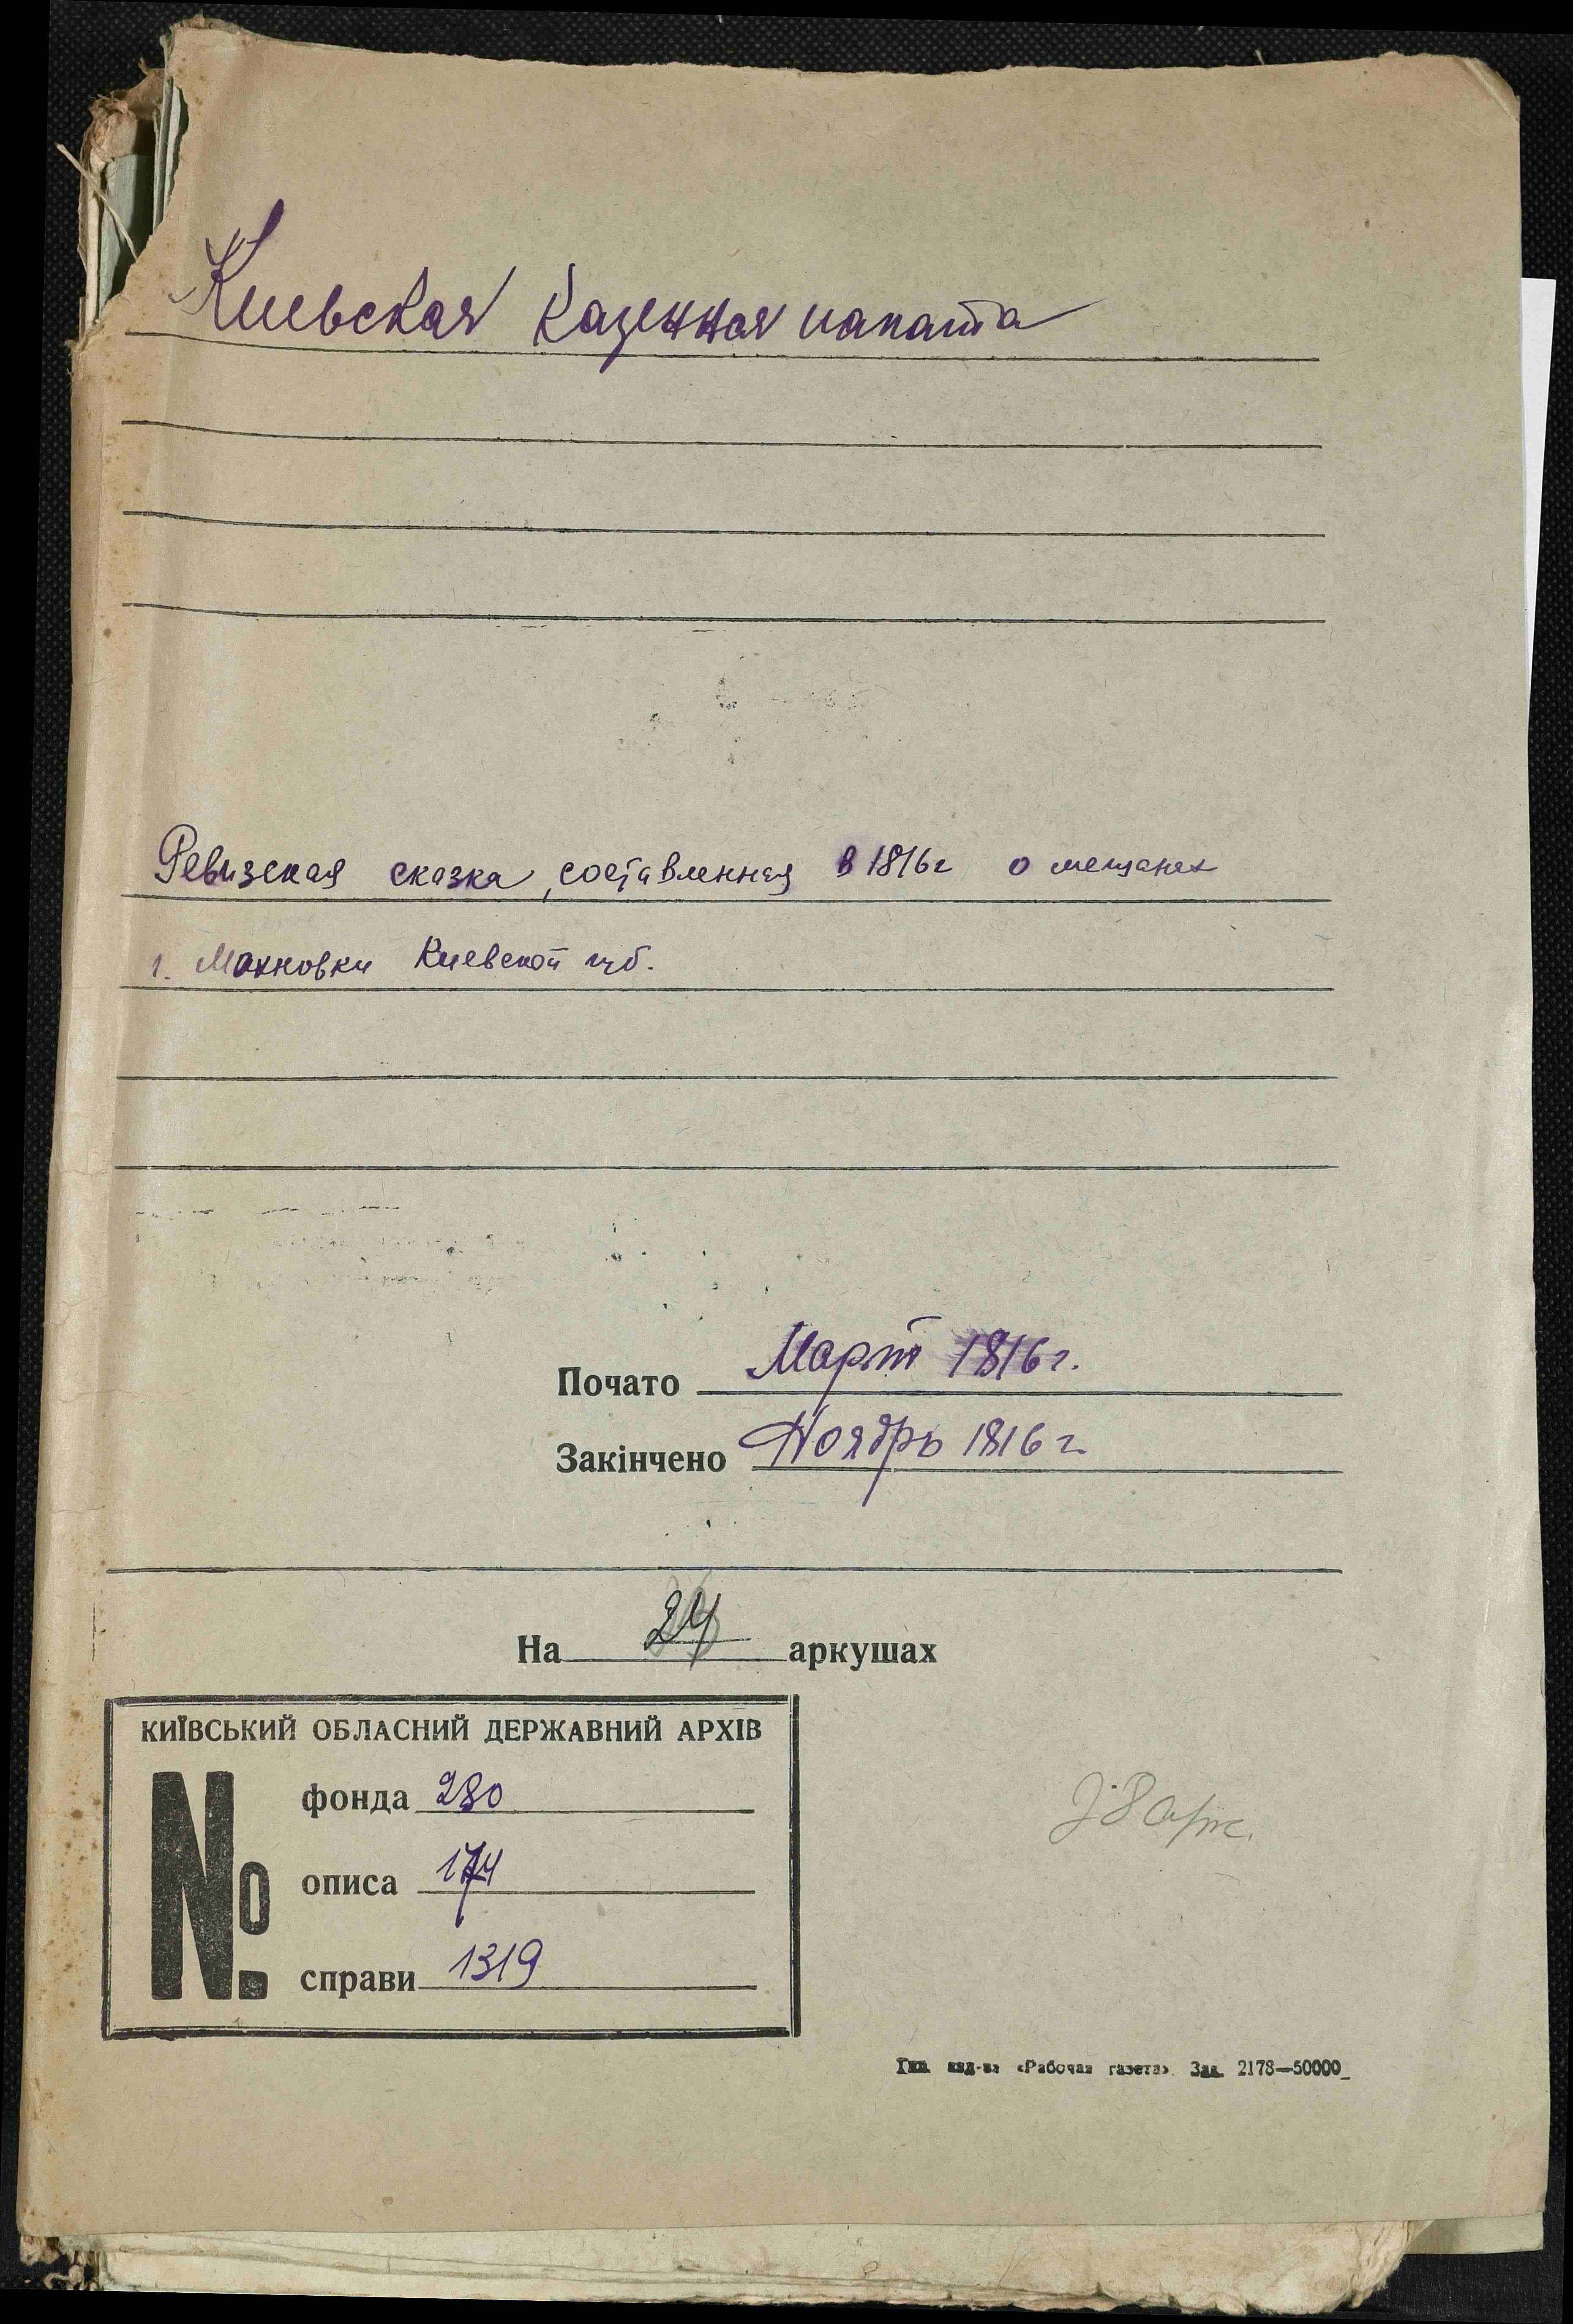 Киевская Казенная палата
Ревизская сказка, составленная в 1816г о мещанах
г. Махновки Киевской губ.
Почато Март 1816 г.
Закінчено Ноябрь 1816 г.
На 24 аркушах
КИЇВСЬКИЙ ОБЛАСНИЙ ДЕРЖАВНИЙ АРХІВ
№ фонда 280
описа 174
справи 1319
арк.
Тип. изд-ва «Рабочая газета» Зак. 2178—50000